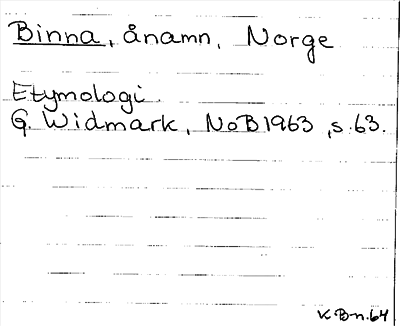 Binna, ånamn, Norge
Etymologi.
G. Widmark, NoB 1963, s. 63.
K Bn. 64